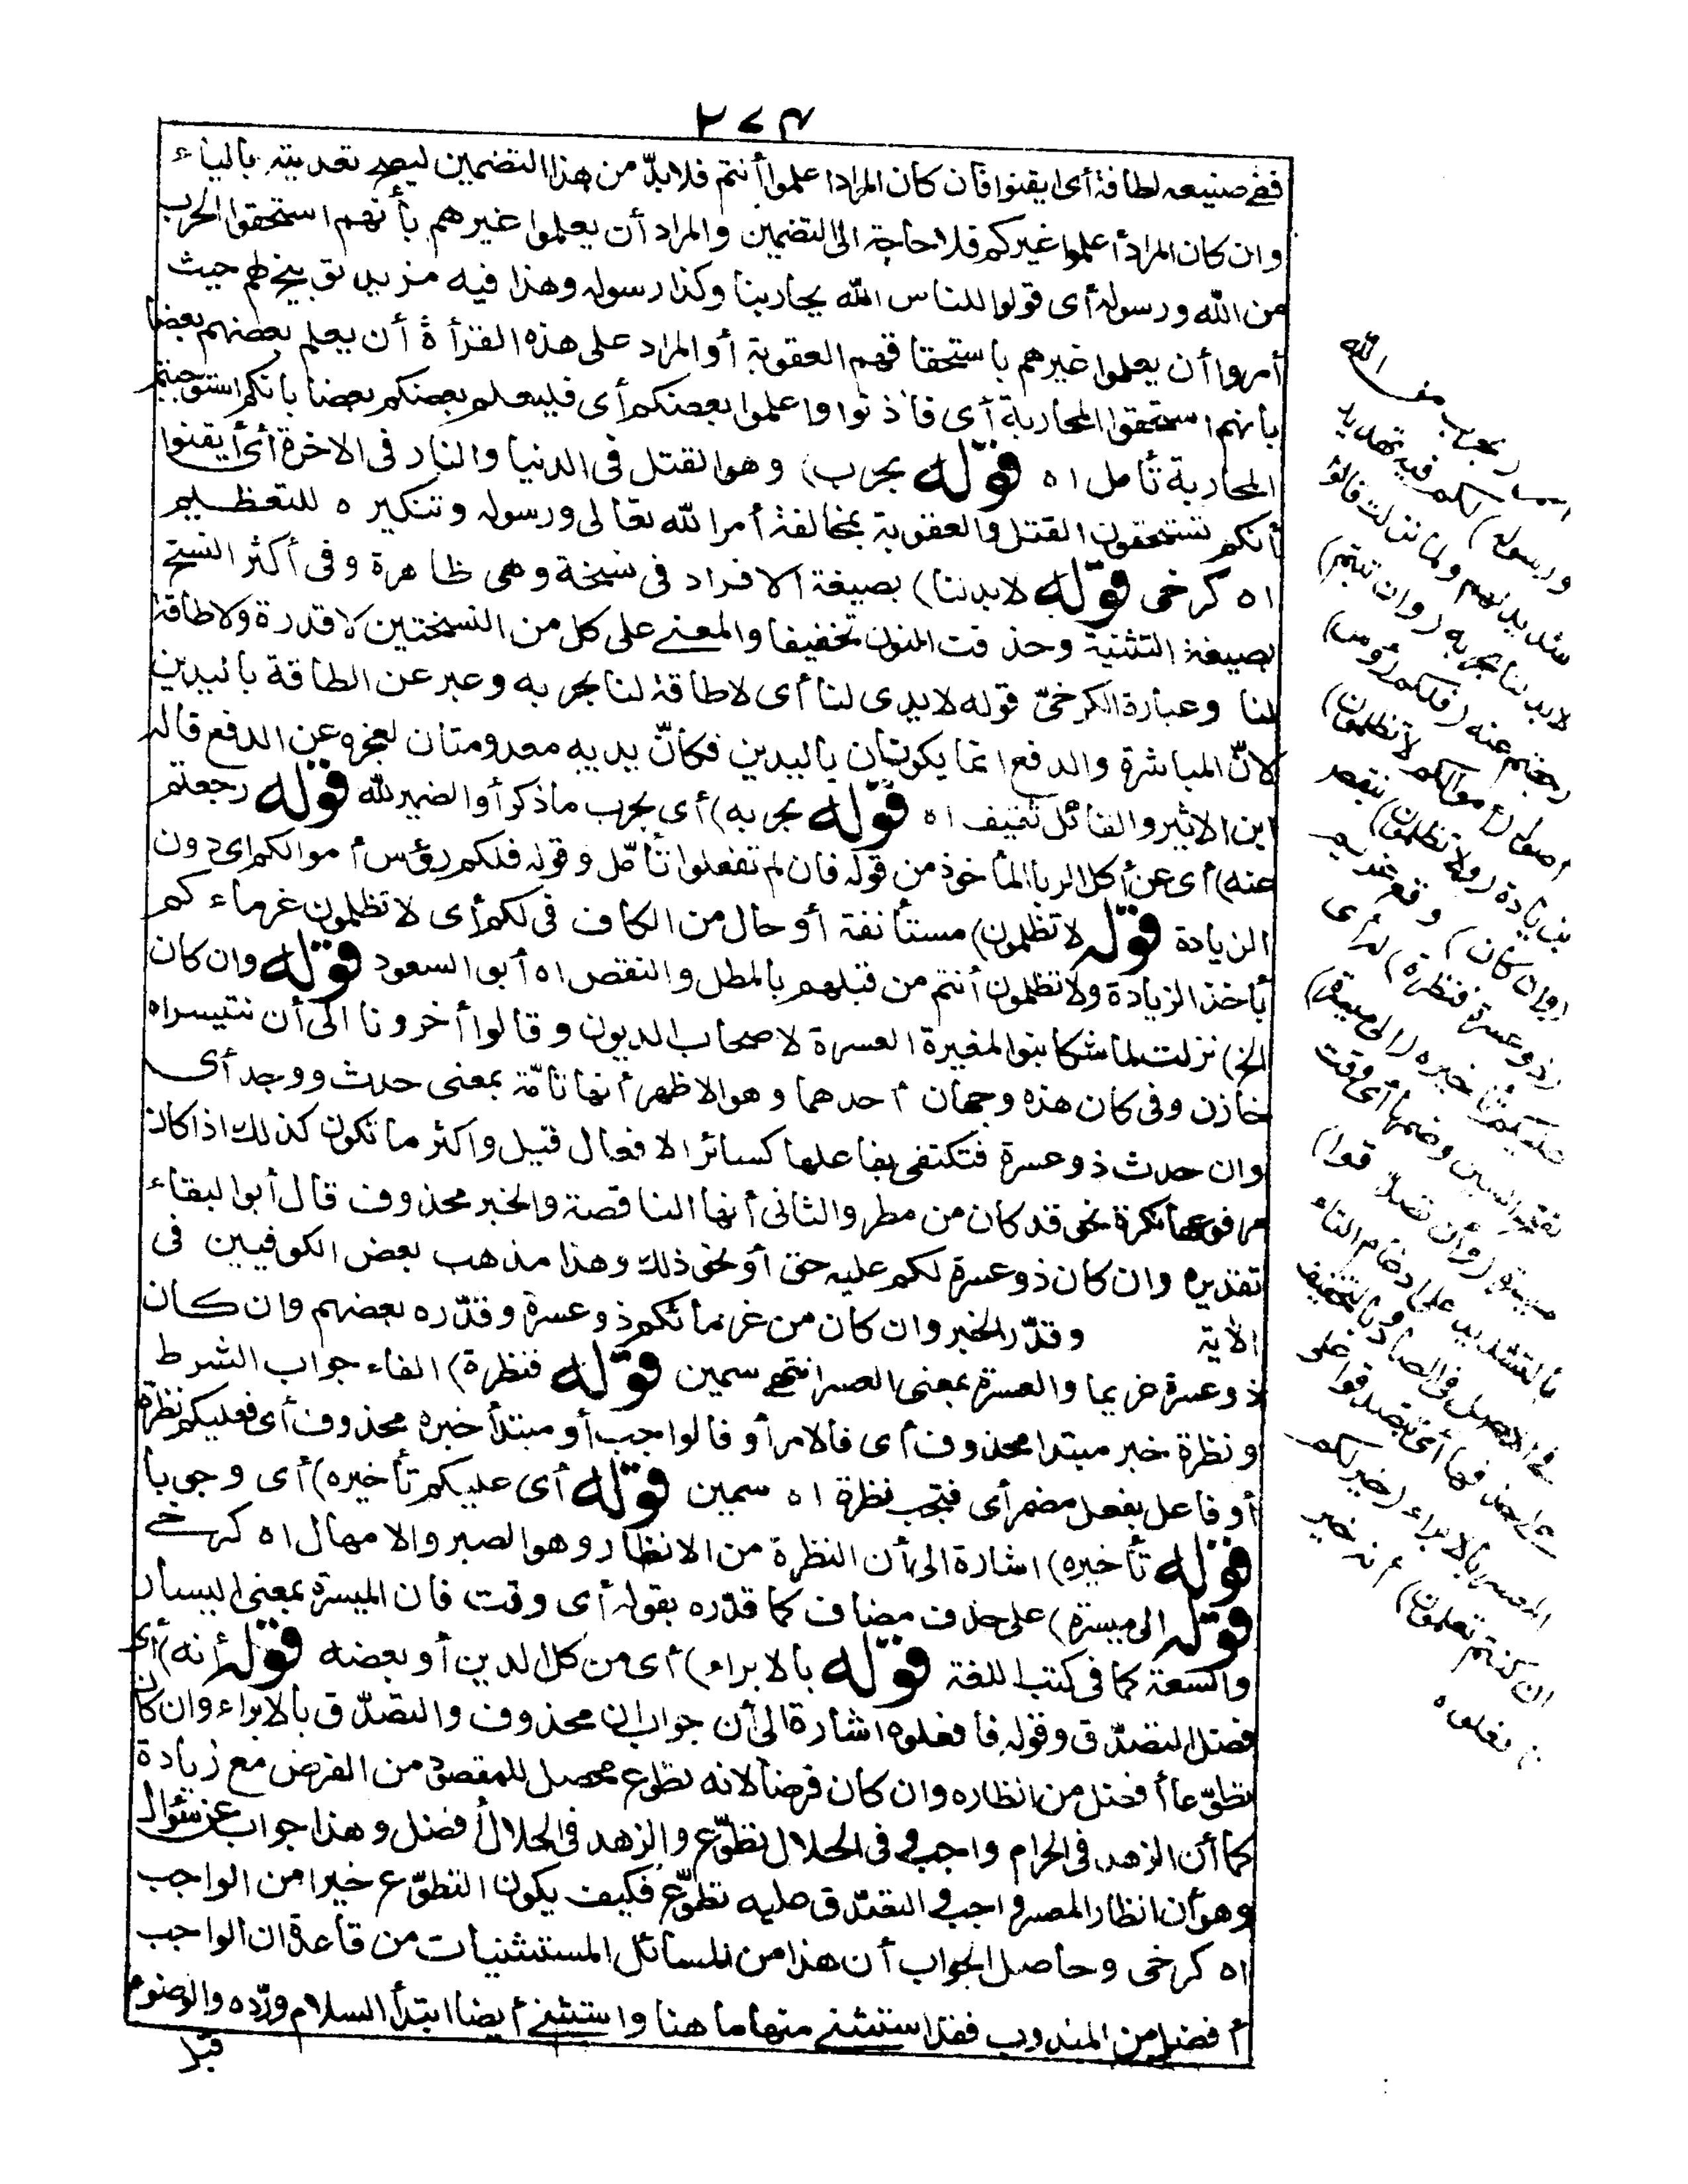 ٢٧٣
ففى صنيعه لطافة أى ايقنوا فان كان المراد اعلموا أنتم فلا بدّ من هذا التضمين ليصح تعديته بالباء
وان كان المراد أعلموا غيركم فلا حاجة الى التضمين والمراد أن يعلموا غيرهم بأنهم استحقوا الحرب
من الله ورسوله أى قولوا للناس الله يحاربنا وكذا رسوله وهذا فيه مزيد توبيخ لهم حيث
أمروا أن يعلموا غيرهم باستحقاقهم العقوبة أو المراد على هذه القرأة أن يعلم بعضهم بعضا
بأنهم استحقوا المحاربة أى فأذنوا واعلموا بعضكم أى فليعلم بعضكم بعضا بانكم استوجبتم
المحاربة تأمل اه قوله بحرب) وهو القتل فى الدنيا والنار فى الاخرة أى أيقنوا
أنكم تستحقون القتل والعقوبة بمخالفة أمر الله تعالى ورسوله وتنكيره للتعظيم
اه كرخى قوله لا يد لنا) بصيغة الافراد فى نسخة وهى ظاهرة وفى أكثر النسخ
بصيغة التثنية وحذفت النون تخفيفا والمعنى على كل من النسختين لا قدرة ولا طاقة
لنا وعبارة الكرخىّ قوله لا يدى لنا أى لا طاقة لنا بحربه وعبر عن الطاقة باليدين
لانّ المباشرة والدفع انما يكونان باليدين فكانّ يديه معدومتان لعجزه عن الدفع قاله
ابن الاثير والقائل ثقيف اه قوله بحربه) أى بحرب ما ذكر أو الضمير لله قوله رجعتم
عنه) أى عن أكل الربا المأخوذ من قوله فان لم تفعلوا تأمّل وقوله فلكم رؤس أموالكم اى دون
الزيادة قوله لا تظلمون) مستأنفة أو حال من الكاف فى لكم أى لا تظلمون غرماءكم
بأخذ الزيادة ولا تظلمون أنتم من قبلهم بالمطل والنقص اه أبو السعود قوله وان كان
الخ) نزلت لما شكا بنو المغيرة العسرة لاصحاب الديون وقالوا أخرونا الى أن نتيسر اه
خازن وفى كان هذه وجهان أحدهما وهو الاظهر أنها تامّة بمعنى حدث ووجد أى
وان حدث ذو عسرة فتكتفى بفاعلها كسائر الافعال قيل واكثر ما تكون كذلك اذا كان
مرفوعها نكرة نحو قد كان من مطر والثانى أنها الناقصة والخبر محذوف قال أبو البقاء
تقديره وان كان ذو عسرة لكم عليه حق أو نحو ذلك وهذا مذهب بعض الكوفيين فى
الاية وقدّر الخبر وان كان من غرمائكم ذو عسرة وقدّره بعضهم وان كان
ذو عسرة غريما والعسرة بمعنى العسر انتهى سمين قوله فنظرة) الفاء جواب الشرط
ونظرة خبر مبتدا محذوف أى فالامر أو فالواجب أو مبتدأ خبره محذوف أى فعليكم نظرة
أو فاعل بفعل مضمر أى فتجب نظرة اه سمين قوله أى عليكم تأخيره) أى وجوبا
قوله تأخيره) اشارة الى أن النظرة من الانظار وهو الصبر والامهال اه كرخى
قوله الى ميسرة) على حذف مضاف كما قدّره بقوله أى وقت فان الميسرة بمعنى اليسار
والسعة كما فى كتب اللغة قوله بالابراء) أى من كل الدين أو بعضه قوله أنه) أى
فضل التصدّق وقوله فافعلوه اشارة الى أن جواب ان محذوف والتصدّق بالابراء وان كان
تطوّعا أفضل من انظاره وان كان فرضا لانه تطوع محصل للمقصود من الفرض مع زيادة
كما أن الزهد فى الحرام واجب وفى الحلال تطوّع والزهد فى الحلال أفضل وهذا جواب عن سؤال
وهو أن انظار المعسر واجب والتصدّق عليه تطوّع فكيف يكون التطوّع خيرا من الواجب
اه كرخى وحاصل الجواب أن هذا من المسائل المستثنيات من قاعدة ان الواجب
أفضل من المندوب فقد استثنى منها ما هنا واستثنى أيضا ابتدأ السلام وردّه والوضوء
قبل
بحرب من الله
ورسوله) لكم فيه تهديد
شديد لهم ولما نزلت قالوا
لا يد لنا بحربه (وان تبتم)
رجعتم عنه (فلكم رؤس)
أصول (أموالكم لا تظلمون)
بزيادة (ولا تظلمون) بنقص
(وان كان) وقع غريم
(ذو عسرة فنظرة) له أى
عليكم تأخيره (الى ميسرة)
بفتح السين وضمها أى وقت
ميسرة (وأن تصدّقوا)
بالتشديد على ادغام التاء
فى الاصل فى الصاد وبالتخفيف
على حذفها أى تتصدقوا على
المعسر بالابراء (خير لكم
ان كنتم تعلمون) أنه خير
فافعلوه